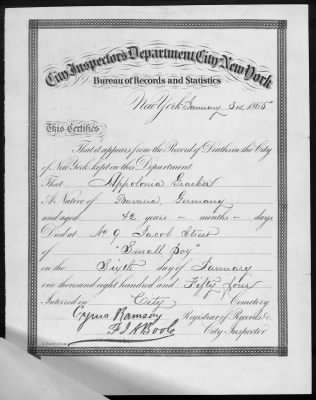 City Inspector's Department, City New York
Bureau of Records and Statistics
New York January 3rd 1865
This Certifies
That it appears from the Record of Deaths in the City
of New York kept in this Department
That Appolonia
A Native of Bavaria, Germany
and aged 42 years - months - days
Died at No 9 Jacob Street
of "Small Pox"
on the Sixth day of January
one thousand eight hundred and Fifty four
Interred in City Cemetery
Cyrus Ramsay Registrar of Records &c.
F I A Boole City Inspector